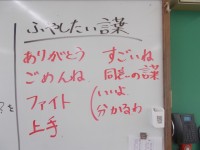 ふやしたい言葉
ありがとう
ごめんね
ファイト
上手
すごいね
同意の言葉
(いいよ
分かるわ